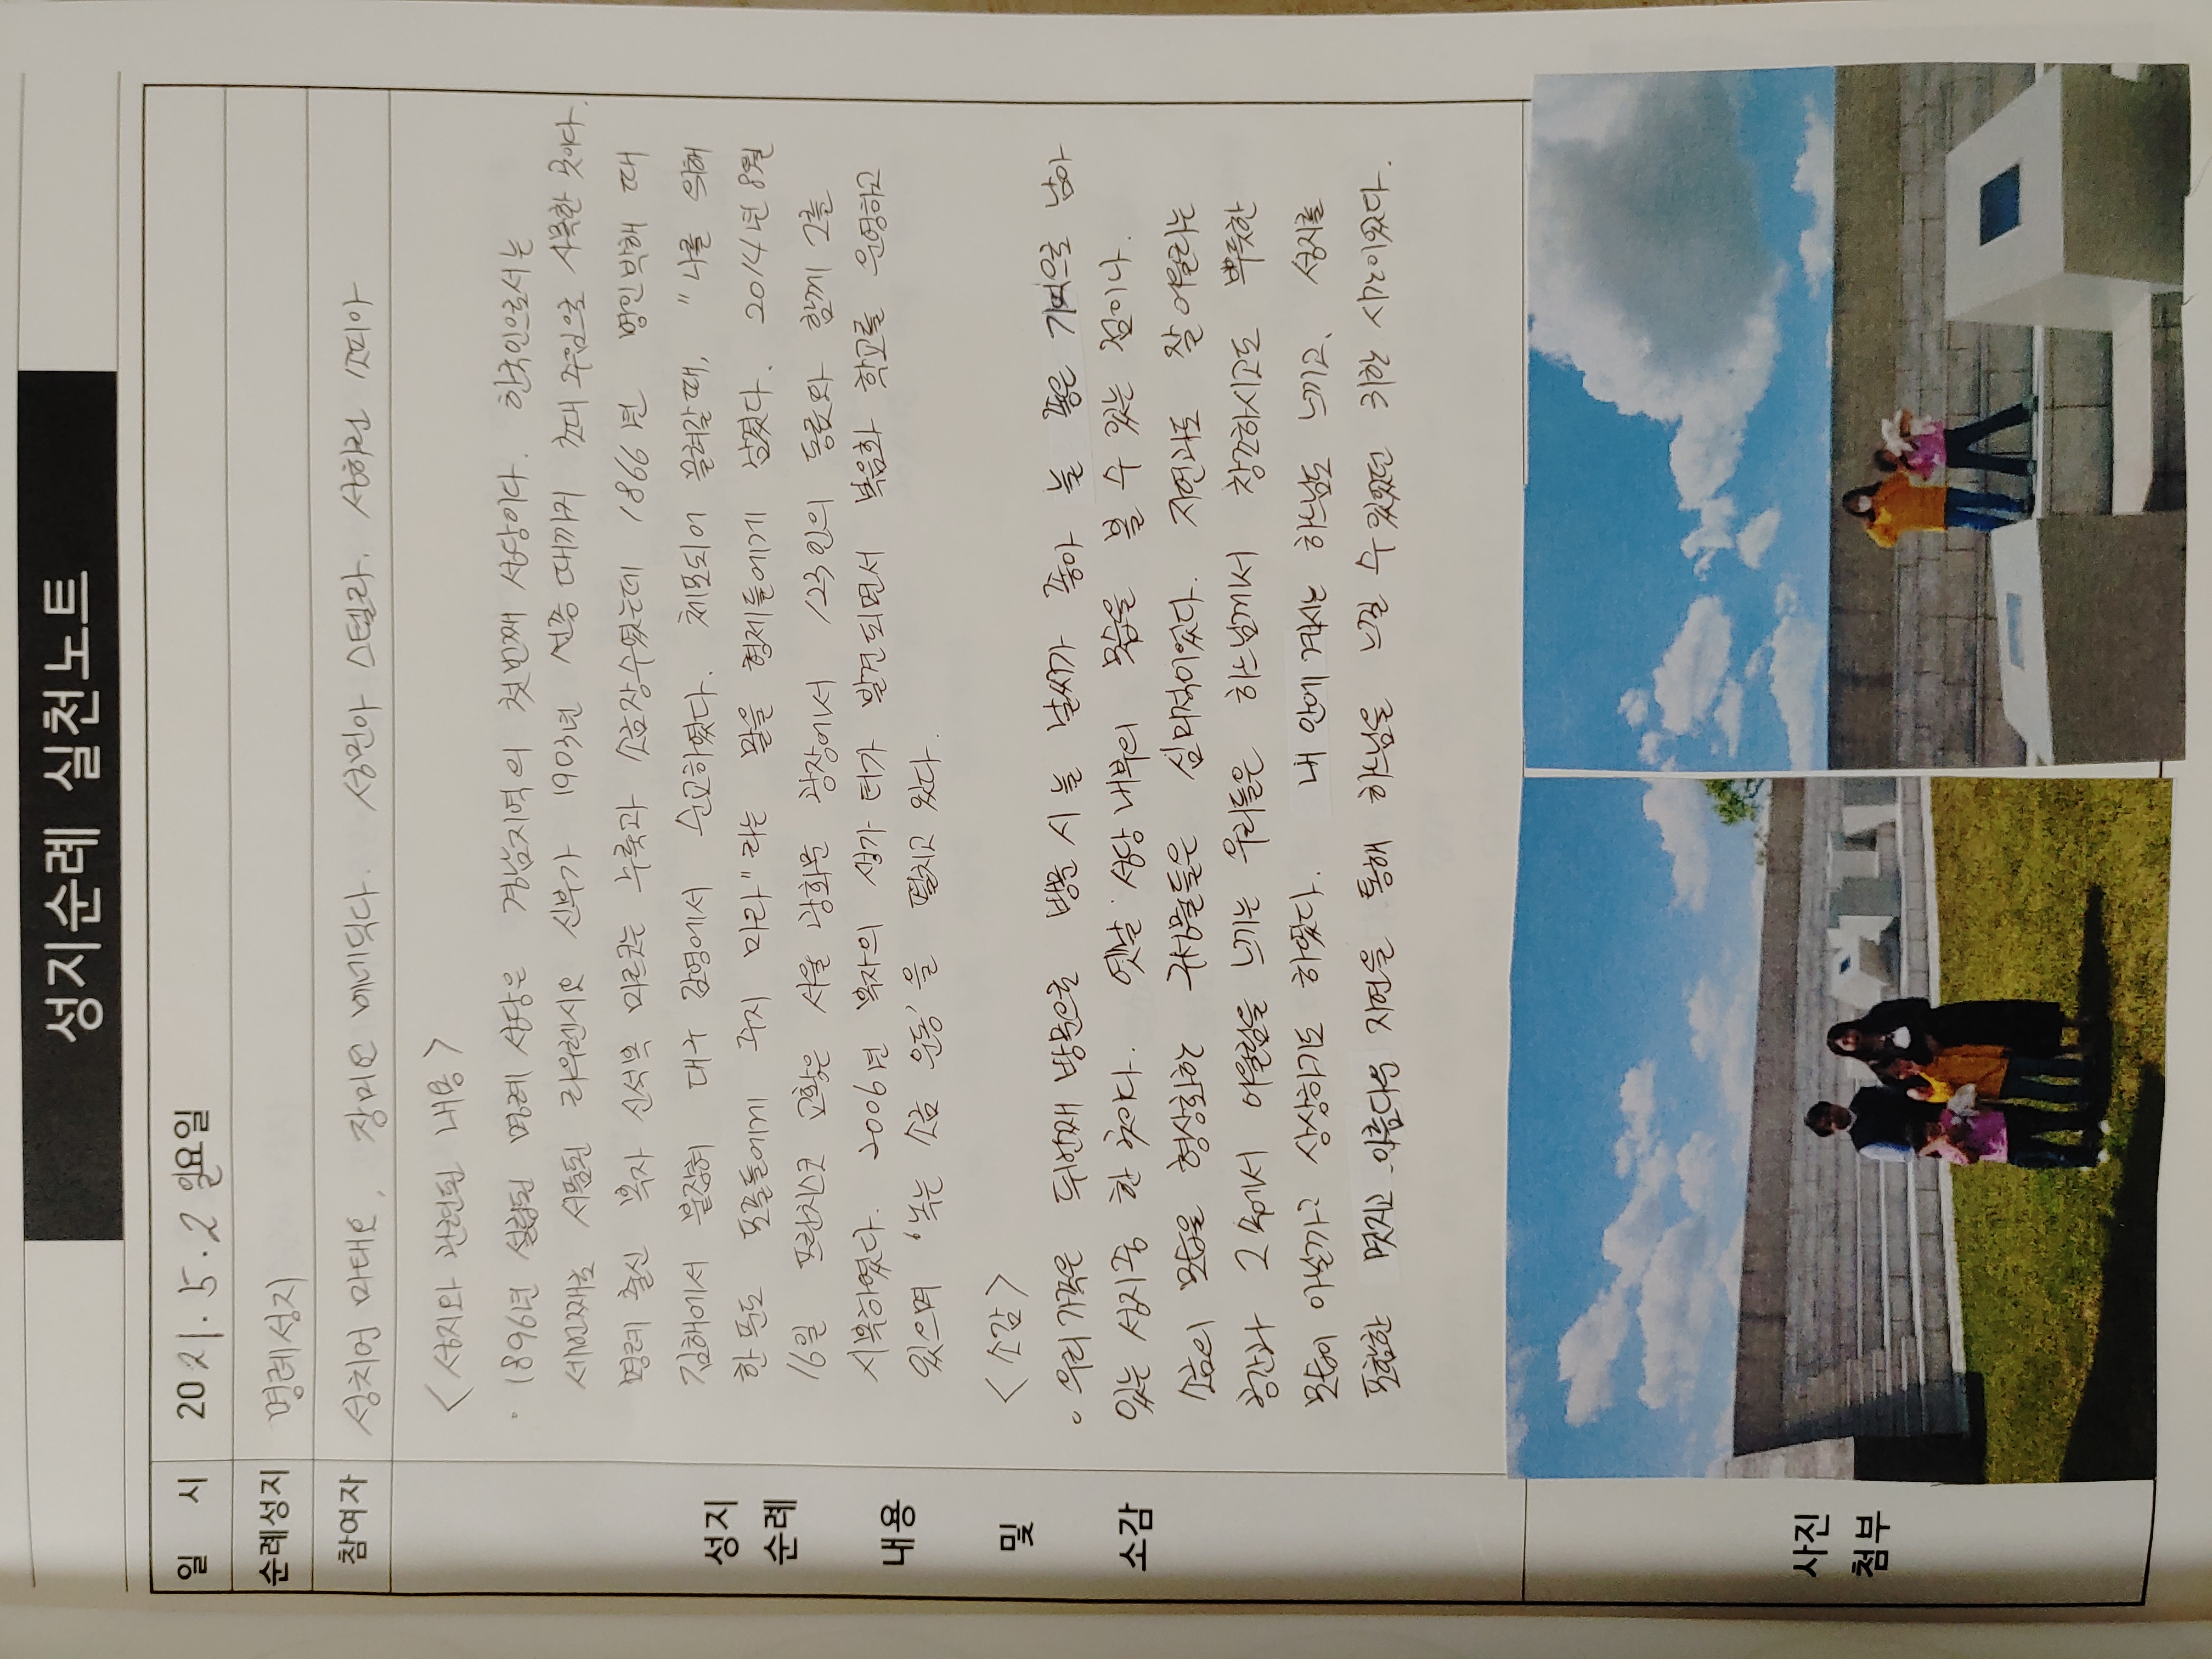 성지순례 실천노트
일 시 2021. 5. 2 일요일
순례성지 명례성지
참여자 성치언 마태오, 장미오 베네딕다. 성민아 스텔라. 성하진 소피아
성지 순례 내용 및 소감
<성지와 관련된 내용>
· 1896년 설립된 명례 성당은 경남지역의 첫번째 성당이다. 한국인으로서는
세번째로 서품된 라우렌시오 신부가 1903년 선종 때까지 초대 주임으로 사목한 곳이다.
명례 출신 복자 신석복 마르코는 누룩과 소금장수였는데 1866년 병인박해 때
김해에서 붙잡혀 대구 감영에서 순교하였다. 체포되어 끌려갈때, "나를 위해
한 푼도 포졸들에게 주지 마라"라는 말을 형제들에게 남겼다. 2014년 8월
16일 프란치스코 교황은 서울 광화문 광장에서 123인의 동료와 함께 그를
시복하였다. 2006년 복자의 생가 터가 발견되면서 복음화 학교를 운영하고
있으며 '녹는 소금 운동'을 펼치고 있다.
<소감>
· 우리가족은 두번째 방문으로 방문 시 늘 날씨가 좋아 늘 좋은 기억으로 남아
있는 성지중 한 곳이다. 옛날 성당 내부의 모습을 볼 수 있는 점이나.
소금의 모습을 형상화한 구조물들은 심미적이었다. 자연과도 잘 어울리는
공간과 그 속에서 어울림을 느끼는 우리들은 하느님께서 창조하시고도 뿌듯한
모습이 아닐까고 상상하기도 하였다. 내 안에 계시는 하느님도 느끼고, 성지를
포함한 멋지고 아름다운 자연을 통해 하느님을 느낄 수 있었던 귀한 시간이었다.
사진 첨부